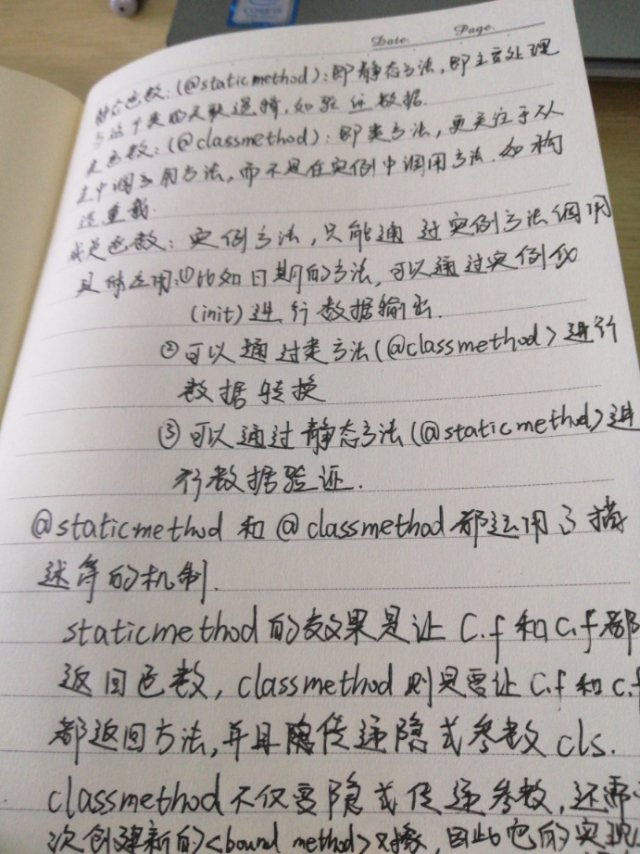 Date. Page.
静态函数:(@staticmethod):即静态方法,即主要处理
与这个类的关联逻辑,如验证数据.
类函数:(@classmethod):即类方法,更关注于从
类中调用方法,而不是在实例中调用方法.如构
造重载.
成员函数:实例方法,只能通过实例方法调用
具体应用:①比如日期的方法,可以通过实例化
(init)进行数据输出.
②可以通过类方法(@classmethod)进行
数据转换
③可以通过静态方法(@staticmethod)进
行数据验证.
@staticmethod和@classmethod都运用了描
述符的机制.
staticmethod的效果是让C.f和c.f都
返回函数,classmethod则是要让C.f和c.f
都返回方法,并且传递隐式参数cls.
classmethod不仅要隐式传递参数,还需
次创建新的<bound method>对象,因此它的实现